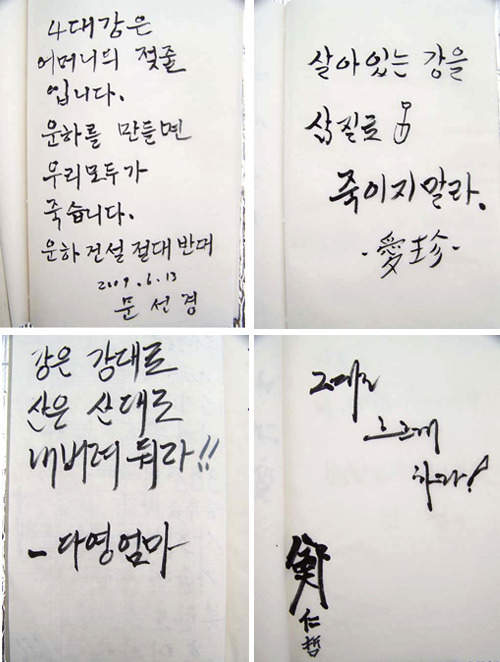 4대강은
어머니의 젖줄
입니다.
운하를 만들면
우리모두가
죽습니다.
운하건설 절대 반대
2009.6.13
문선경
살아있는 강을
삽질로
죽이지말라.
-愛珍-
강은 강대로
산은 산대로
내버려 둬라!!
- 다영엄마
그대로
흐르게
하라!
鄭仁哲